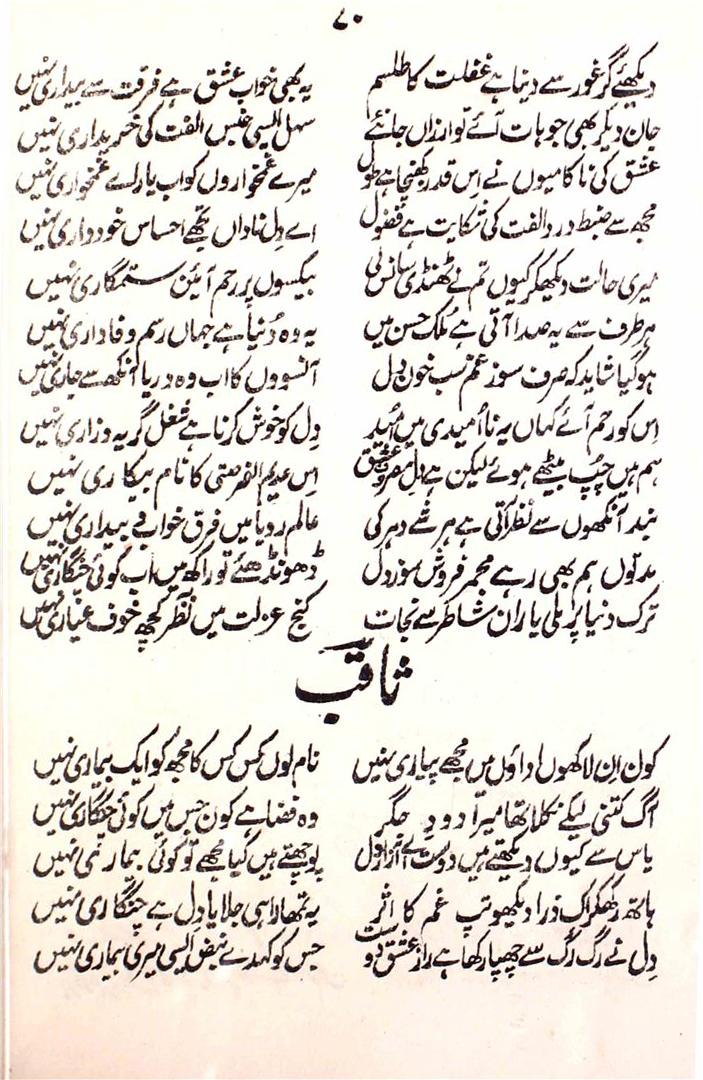 ۷۰
دیکھئے گر غور سے دنیا ہے غفلت کا طلسم یہ بھی خواب عشق ہے فرقت سے بیداری نہیں
جان دیکر بھی جو ہات آئے تو ارزاں جانئے سہل ایسی جنس الفت کی خریداری نہیں
عشق کی ناکامیوں نے اس قدر کھینچا ہے طول میرے غمخواروں کو اب یارائے غمخواری نہیں
مجھ سے ضبط درد الفت کی شکایت ہے فضول اے دل ناداں تجھے احساس خودداری نہیں
میری حالت دیکھکر کیوں تم نے ٹھنڈی سانس لی بیکسوں پر رحم آئین ستمگاری نہیں
ہر طرف سے یہ صدا آتی ہے ملک حسن میں یہ وہ دُنیا ہے جہاں رسم وفاداری نہیں
ہو گیا شاید کہ صرف سوز غم سب خون دل آنسووں کا اب وہ دریا آنکھ سے جاری نہیں
اس کو رحم آئے کہاں یہ نا اُمیدی میں اُمید دِل کو خوش کرنا ہے شغل گریہ وزاری نہیں
ہم ہیں چپ بیٹھے ہوئے لیکن ہے دل مصروف عشق اس عدیم الفرصتی کا نام بیکاری نہیں
بند آنکھوں سے نظر آتی ہے ہر شے دہر کی عالم رویا میں فرق خواب و بیداری نہیں
مدتوں ہم بھی رہے مجمر فروش سوز دل ڈھونڈھئے تو راکھ میں اب کوئی چنگاری نہیں
ترک دنیا پر ملی یاران شاطر سے نجات کنج عزلت میں نظر کچھ خوف عیاری نہیں
ثاقب
کون اِن لاکھوں اداؤں میں مجھے پیاری نہیں نام لوں کس کس کا مجھ کو ایک بیماری نہیں
آگ کتنی لیکے نکلا تھا میرا دود جگر وہ فضا ہے کون جس میں کوئی چنگاری نہیں
یاس سے کیوں دیکھتے ہیں دوست پوچھتے ہیں کیا مجھے تو کوئی بیماری نہیں
ہاتھ رکھکر اک ذرا دیکھو تپ غم کا اثر یہ تمھارا ہی جلایا دِل ہے چنگاری نہیں
دِل نے رگ رگ سے چھپا رکھا ہے راز عشق دوست جس کو کہدے نبض ایسی میری بیماری نہیں